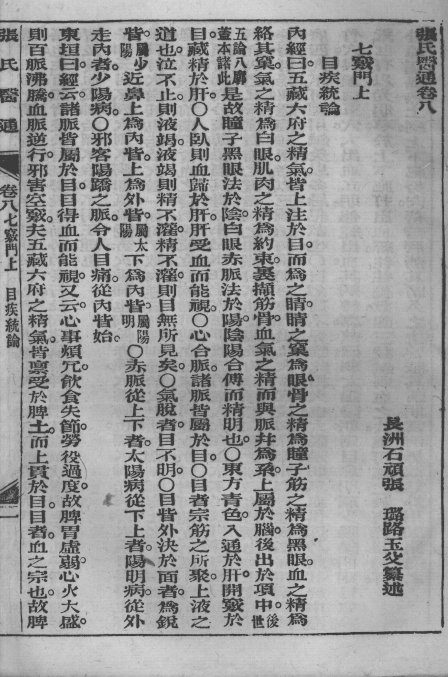 張氏醫通卷八
長洲石頑張 璐路玉父纂述
七竅門上
目疾統論
內經曰五藏六府之精氣。皆上注於目而為之睛。睛之窠為眼。骨之精為瞳子。筋之精為黑眼。血之精為
絡其窠。氣之精為白眼。肌肉之精為約束裹擷。筋骨血氣之精而與脈并為系。上屬於腦。後出於項中。後世
五論八廓蓋本諸此是故瞳子黑眼法於陰。白眼赤脈法於陽。陰陽合傅而精明也。○東方青色。入通於肝。開竅於
目。藏精於肝。○人臥則血歸於肝。肝受血而能視。○心合脈。諸脈皆屬於目。○目者宗筋之所聚。上液之
道也。泣不止則液竭。液竭則精不灌。精不灌則目無所見矣。○氣脫者目不明。○目眥外決於面者為銳
眥。屬少陽近鼻上為內眥。上為外眥。屬太陽下為內眥。屬陽明○赤脈從上下者太陽病。從下上者陽明病。從外
走內者少陽病。○邪客陽蹻之脈。令人目痛。從內眥始。
東垣曰。經云。諸脈皆屬於目。目得血而能視。又云。心事煩冗。飲食失節。勞役過度。故脾胃虛弱。心火大盛。
則百脈沸騰。血脈逆行。邪害空竅。夫五藏六府之精氣。皆稟受於脾土。而上貫於目。目者血之宗也。故脾
張氏醫通 卷八七竅門上 目疾統論